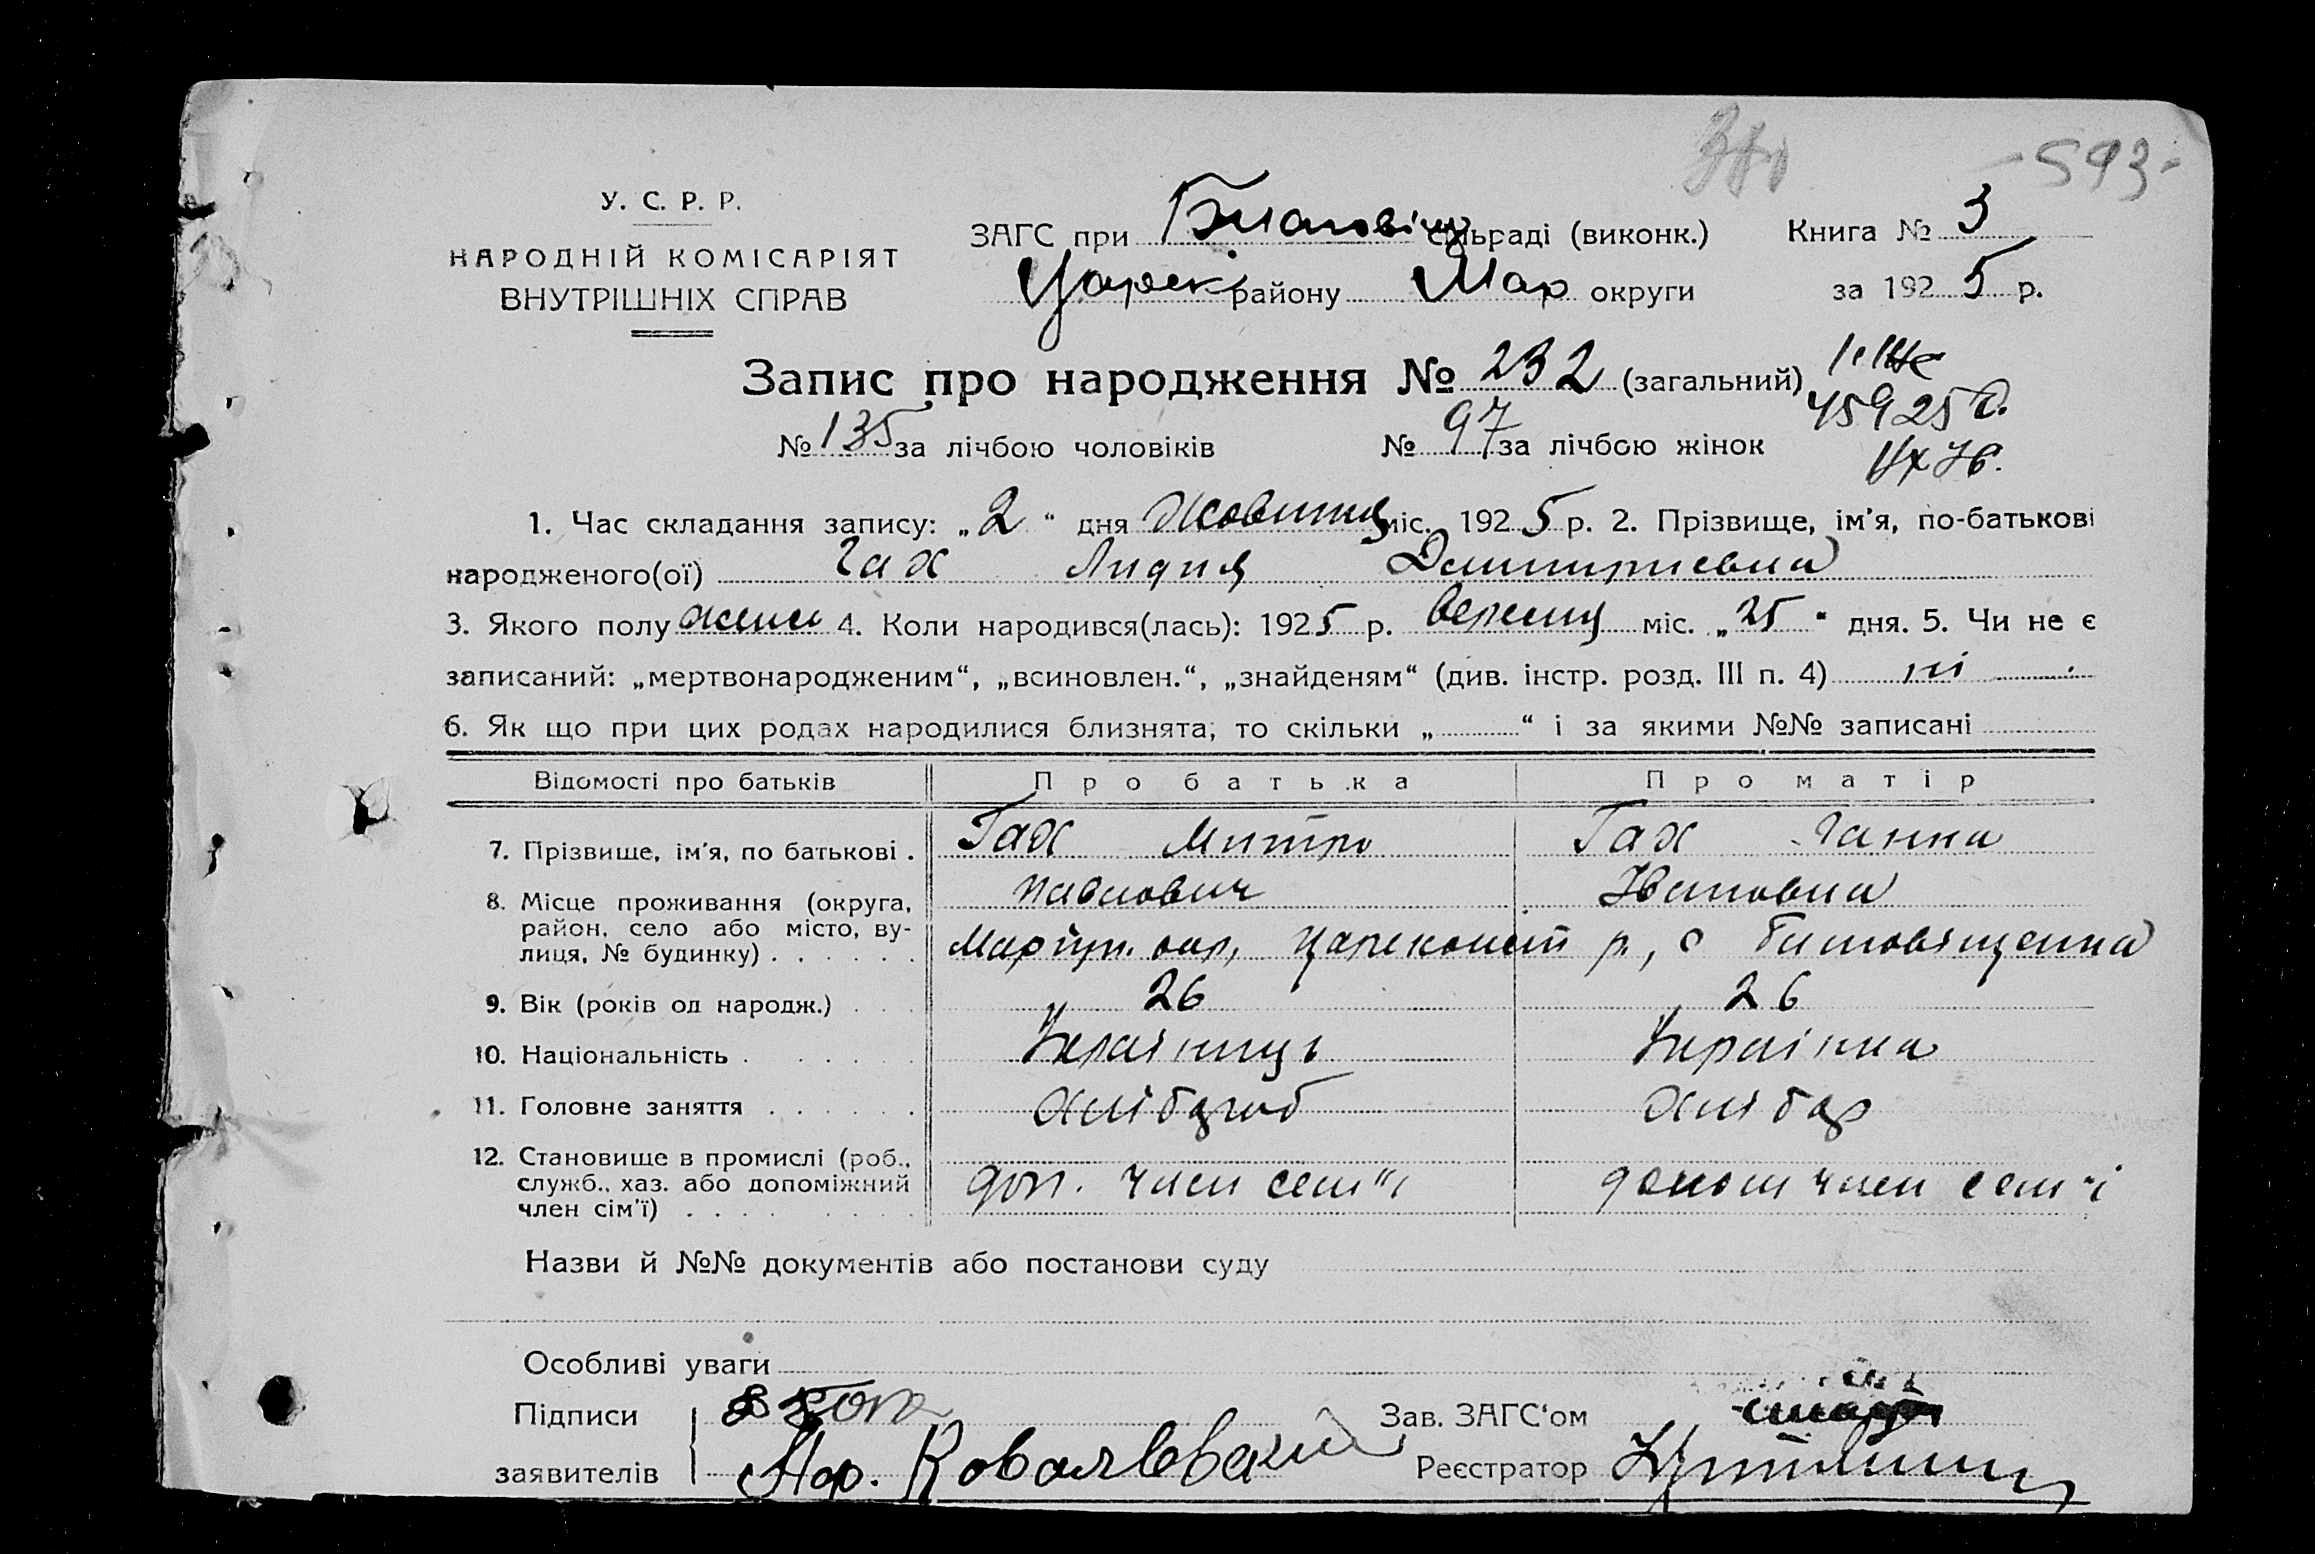 - 593 -
У. С. Р. Р.
НАРОДНІЙ КОМІСАРІЯТ
ВНУТРІШНІХ СПРАВ
ЗАГС при Благовіщ сільраді (виконк.) Книга № 3
Царек району Мар округи за 1925 р.
Запис про народження № 232 (загальний)
№ 135 за лічбою чоловіків № 97 за лічбою жінок
1. Час складання запису: „2“ дня Жовтня міс. 1925 р. 2. Прізвище, ім'я, по-батькові
народженого(ої) Гах Лидия Димитриевна
3. Якого полу жіноч 4. Коли народився(лась): 1925 р. вересня міс. „25“ дня. 5. Чи не є
записаний: „мертвонародженим“, „всиновлен.“, „знайденям“ (див. інстр. розд. III п. 4) ні
6. Як що при цих родах народилися близнята, то скільки „ “ і за якими №№ записані
Відомості про батьків Про батька Про матір
7. Прізвище, ім'я, по батькові . Гах Митро Гах Ганна
Павлович Ивановна
8. Місце проживання (округа,
район, село або місто, ву-
лиця, № будинку) . . . . . . Маріуп. окр, Царекост р, с Благовіщенка
9. Вік (років од народж.) . . . 26 26
10. Національність . . . . . . Українць Українка
11. Головне заняття . . . . . . Хлібороб Хлібор
12. Становище в промислі (роб.,
служб., хаз. або допоміжний
член сім'ї) . . . . . . . . доп. член сем"ї допом член сем"ї
Назви й №№ документів або постанови суду
Особливі уваги
Підписи Зав. ЗАГС'ом
заявителів Ковалевский Реєстратор